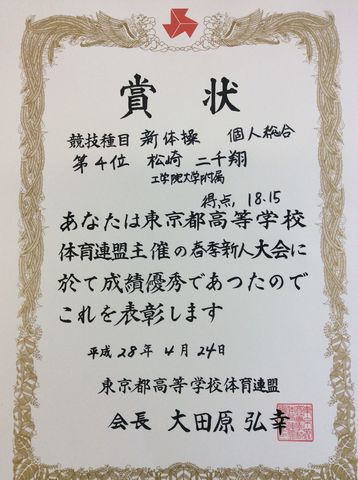 賞状
競技種目 新体操 個人総合
第4位 松崎 二千翔
工学院大学附属
得点, 18.15
あなたは東京都高等学校
体育連盟主催の春季新人大会に
於て成績優秀であつたので
これを表彰します
平成28年4月24日
東京都高等学校体育連盟
会長 大田原弘幸